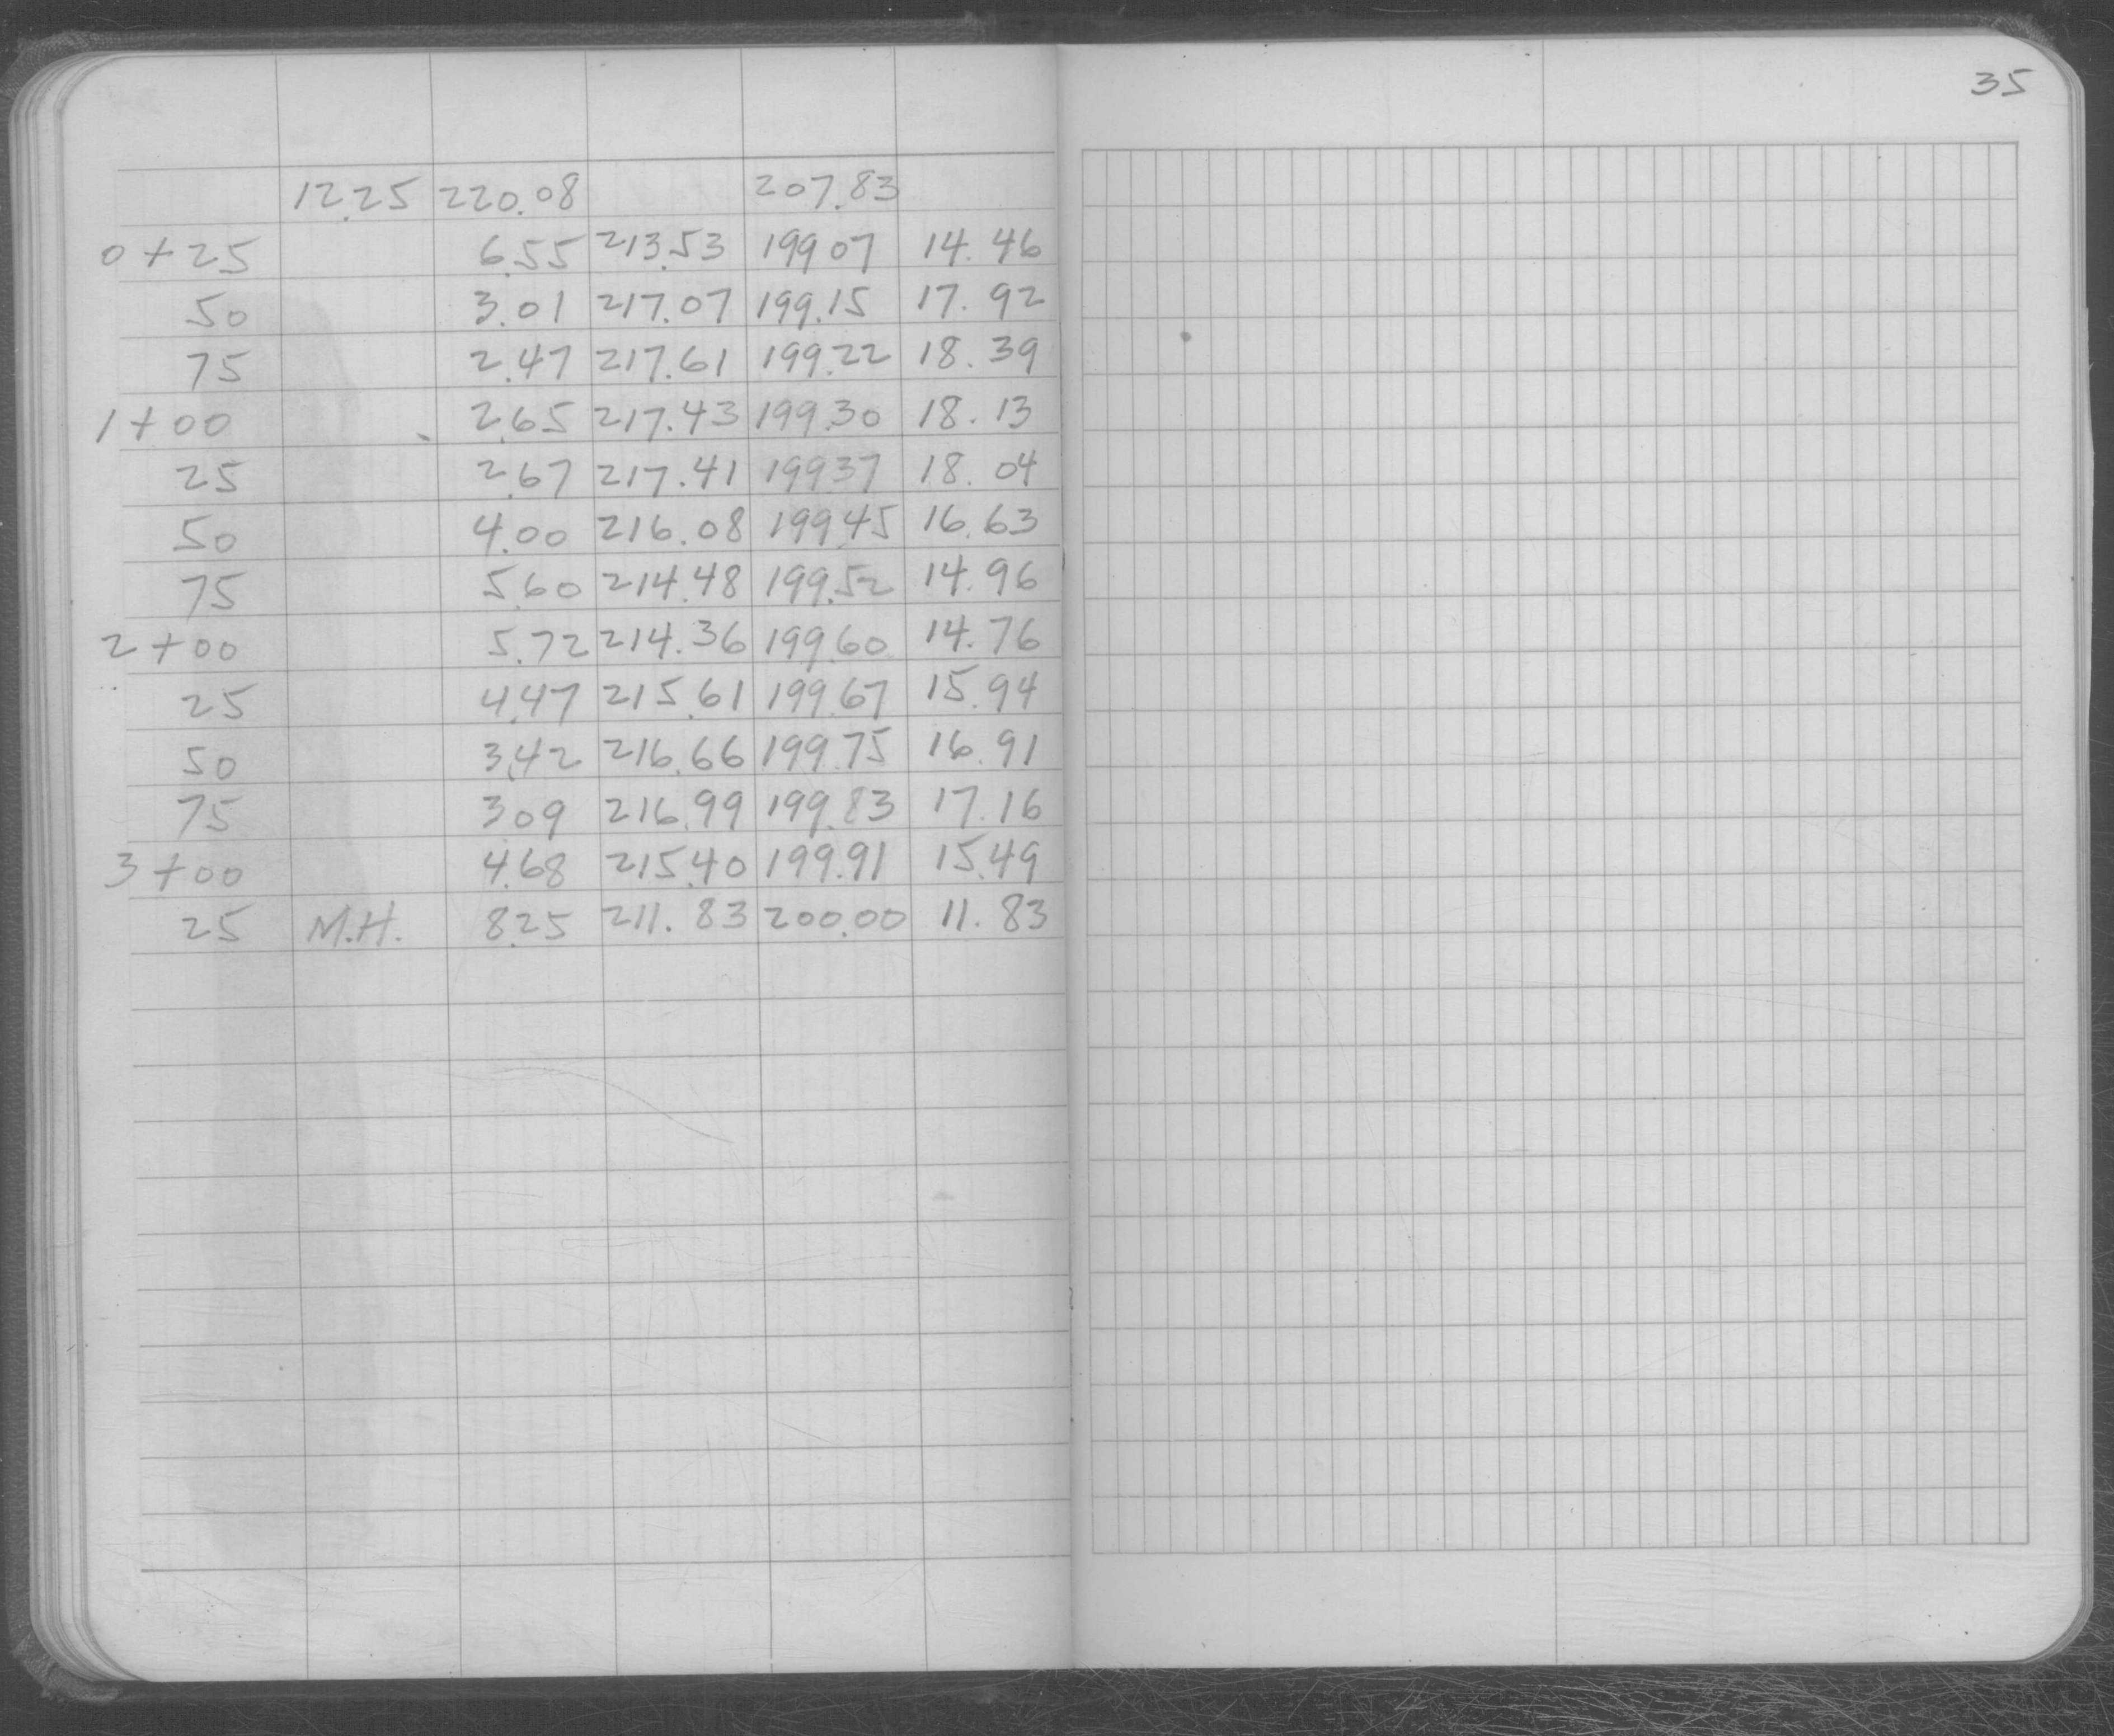 35
12.25 220.08 207.83
0+25 6.55 213.53 199.07 14.46
50 3.01 217.07 199.15 17.92
75 2.47 217.61 199.22 18.39
1+00 2.65 217.43 199.30 18.13
25 2.67 217.41 199.37 18.04
50 4.00 216.08 199.45 16.63
75 5.60 214.48 199.52 14.96
2+00 5.72 214.36 199.60 14.76
25 4.47 215.61 199.67 15.94
50 3.42 216.66 199.75 16.91
75 3.09 216.99 199.83 17.16
3+00 4.68 215.40 199.91 15.49
25 M.H. 8.25 211.83 200.00 11.83